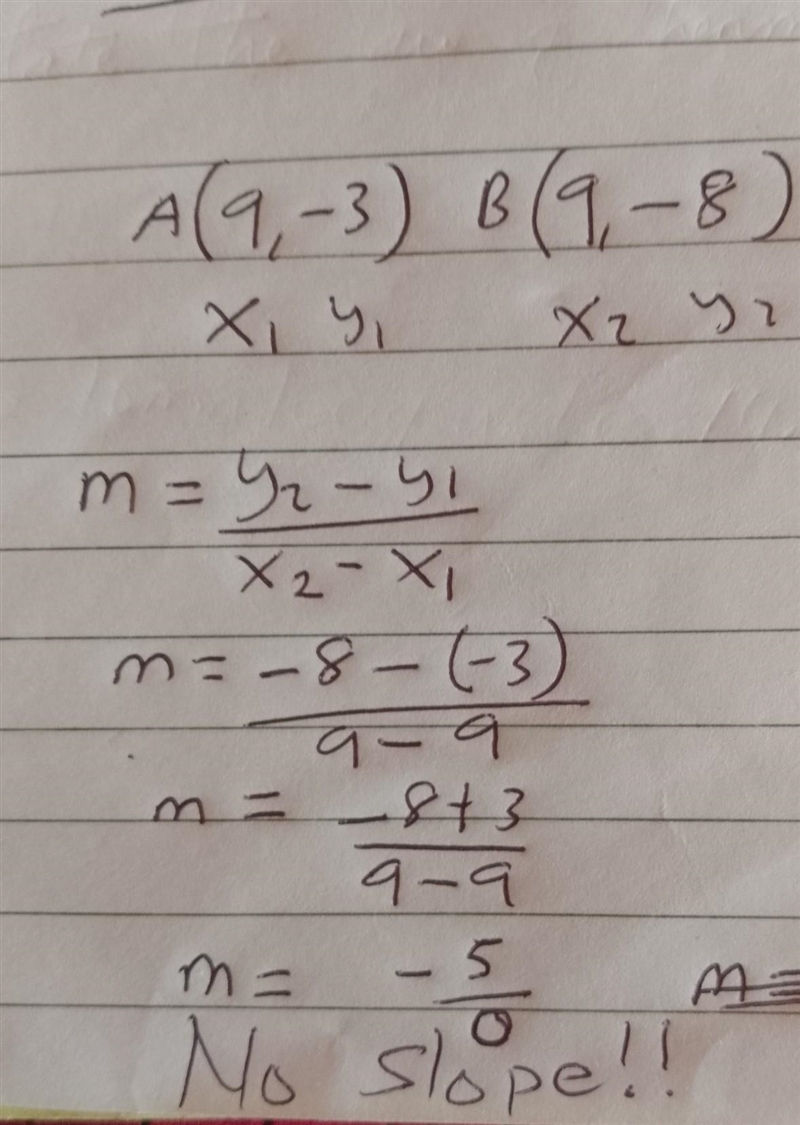 A(9,-3) B(9,-8)
x₁ y₁ x₂ y₂
m = y₂ - y₁
x₂ - x₁
m = -8 - (-3)
9 - 9
m = -8+3
9-9
m = -5
0
No slope!!